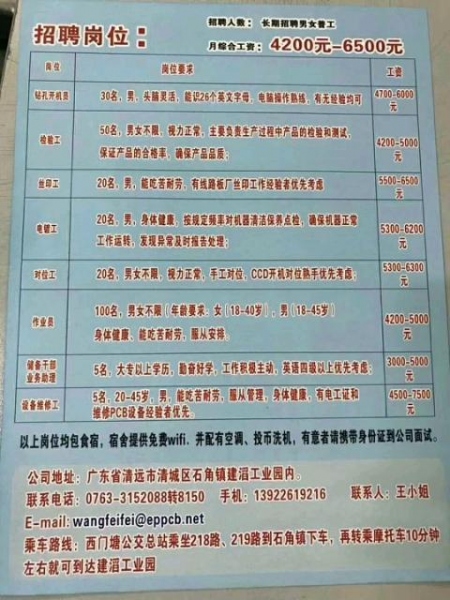 招聘岗位：
招聘人数： 长期招聘男女普工
月综合工资： 4200元-6500元
岗位 岗位要求 工资
钻孔开机员 30名，男，头脑灵活，能识26个英文字母，电脑操作熟练，有无经验均可 4700-6000元
检验工 50名，男女不限，视力正常，主要负责生产过程中产品的检验和测试，
保证产品的合格率，确保产品品质； 4200-5000元
丝印工 20名，男，能吃苦耐劳，有线路板厂丝印工作经验者优先考虑 5500-6500元
电镀工 20名，男，身体健康，按规定频率对机器清洁保养点检，确保机器正常
工作运转，发现异常及时报告处理； 5300-6200元
对位工 20名，男女不限，视力正常，手工对位，CCD开机对位熟手优先考虑； 5300-6300元
作业员 100名，男女不限（年龄要求：女（18-40岁），男（18-45岁）
身体健康，能吃苦耐劳，服从安排。 4200-5000元
储备干部
业务助理 5名，大专以上学历，勤奋好学，工作积极主动，英语四级以上优先考虑； 3000-5000元
设备维修工 5名，20-45岁，男，能吃苦耐劳，服从管理，身体健康，有电工证和
维修PCB设备经验者优先。 4500-7500元
以上岗位均包食宿，宿舍提供免费wifi．并配有空调、投币洗机，有意者请携带身份证到公司面试。
公司地址：广东省清远市清城区石角镇建滔工业园内。
联系电话：0763-3152088转8150 手机：13922619216 联系人：王小姐
E-mail: wangfeifei@eppcb.net
乘车路线：西门塘公交总站乘坐218路、219路到石角镇下车，再转乘摩托车10分钟
左右就可到达建滔工业园